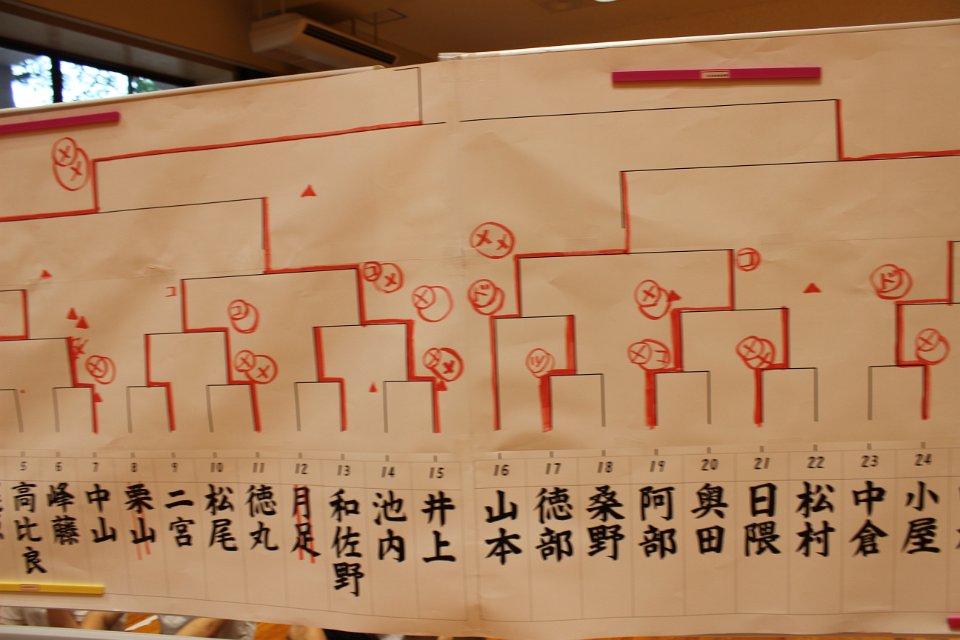 5 6 7 8 9 10 11 12 13 14 15 16 17 18 19 20 21 22 23 24
高比良
峰藤
中山
栗山
二宮
松尾
徳丸
月足
和佐野
池内
井上
山本
徳部
桑野
阿部
奥田
日隈
松村
中倉
小屋
メ メ
コ
コ メ
メ
コ
メ メ
メ メ
メ メ
ド
ツ
メ
メ コ
コ
メ メ
ド
メ